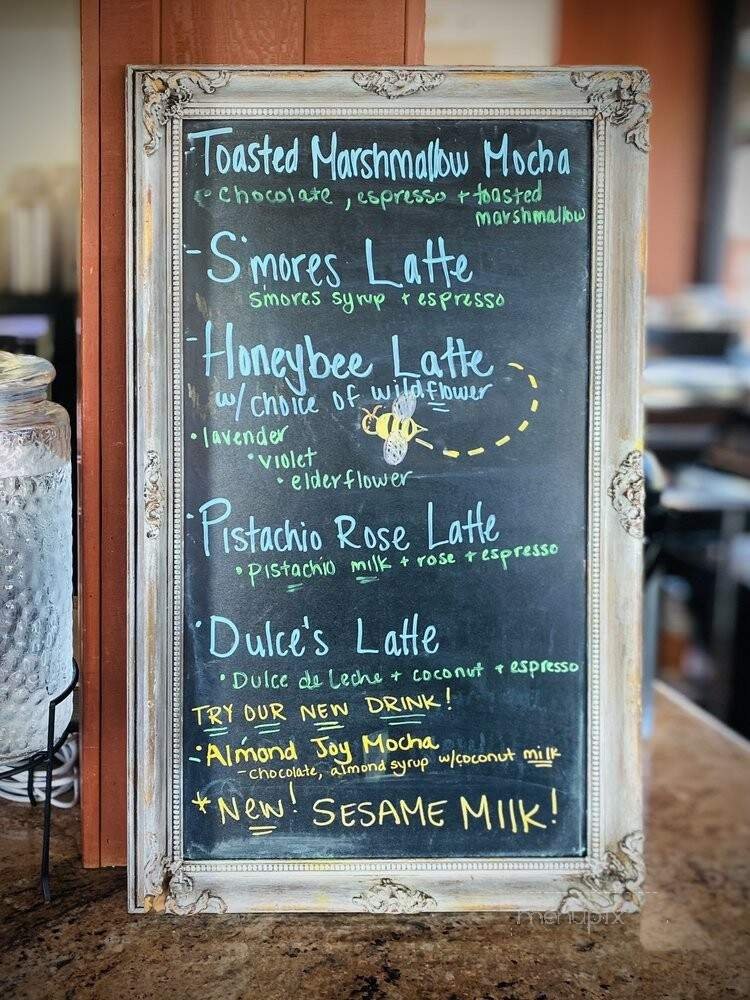 - Toasted Marshmallow Mocha
chocolate, espresso + toasted
marshmallow
- S'mores Latte
smores syrup + espresso
- Honeybee Latte
w/ choice of wildflower
• lavender
• violet
• elderflower
• Pistachio Rose Latte
• pistachio milk + rose + espresso
• Dulce's Latte
• Dulce de Leche + coconut + espresso
TRY OUR NEW DRINK!
• Almond Joy Mocha
- chocolate, almond syrup w/coconut milk
* New! SESAME MIlk!
menupix